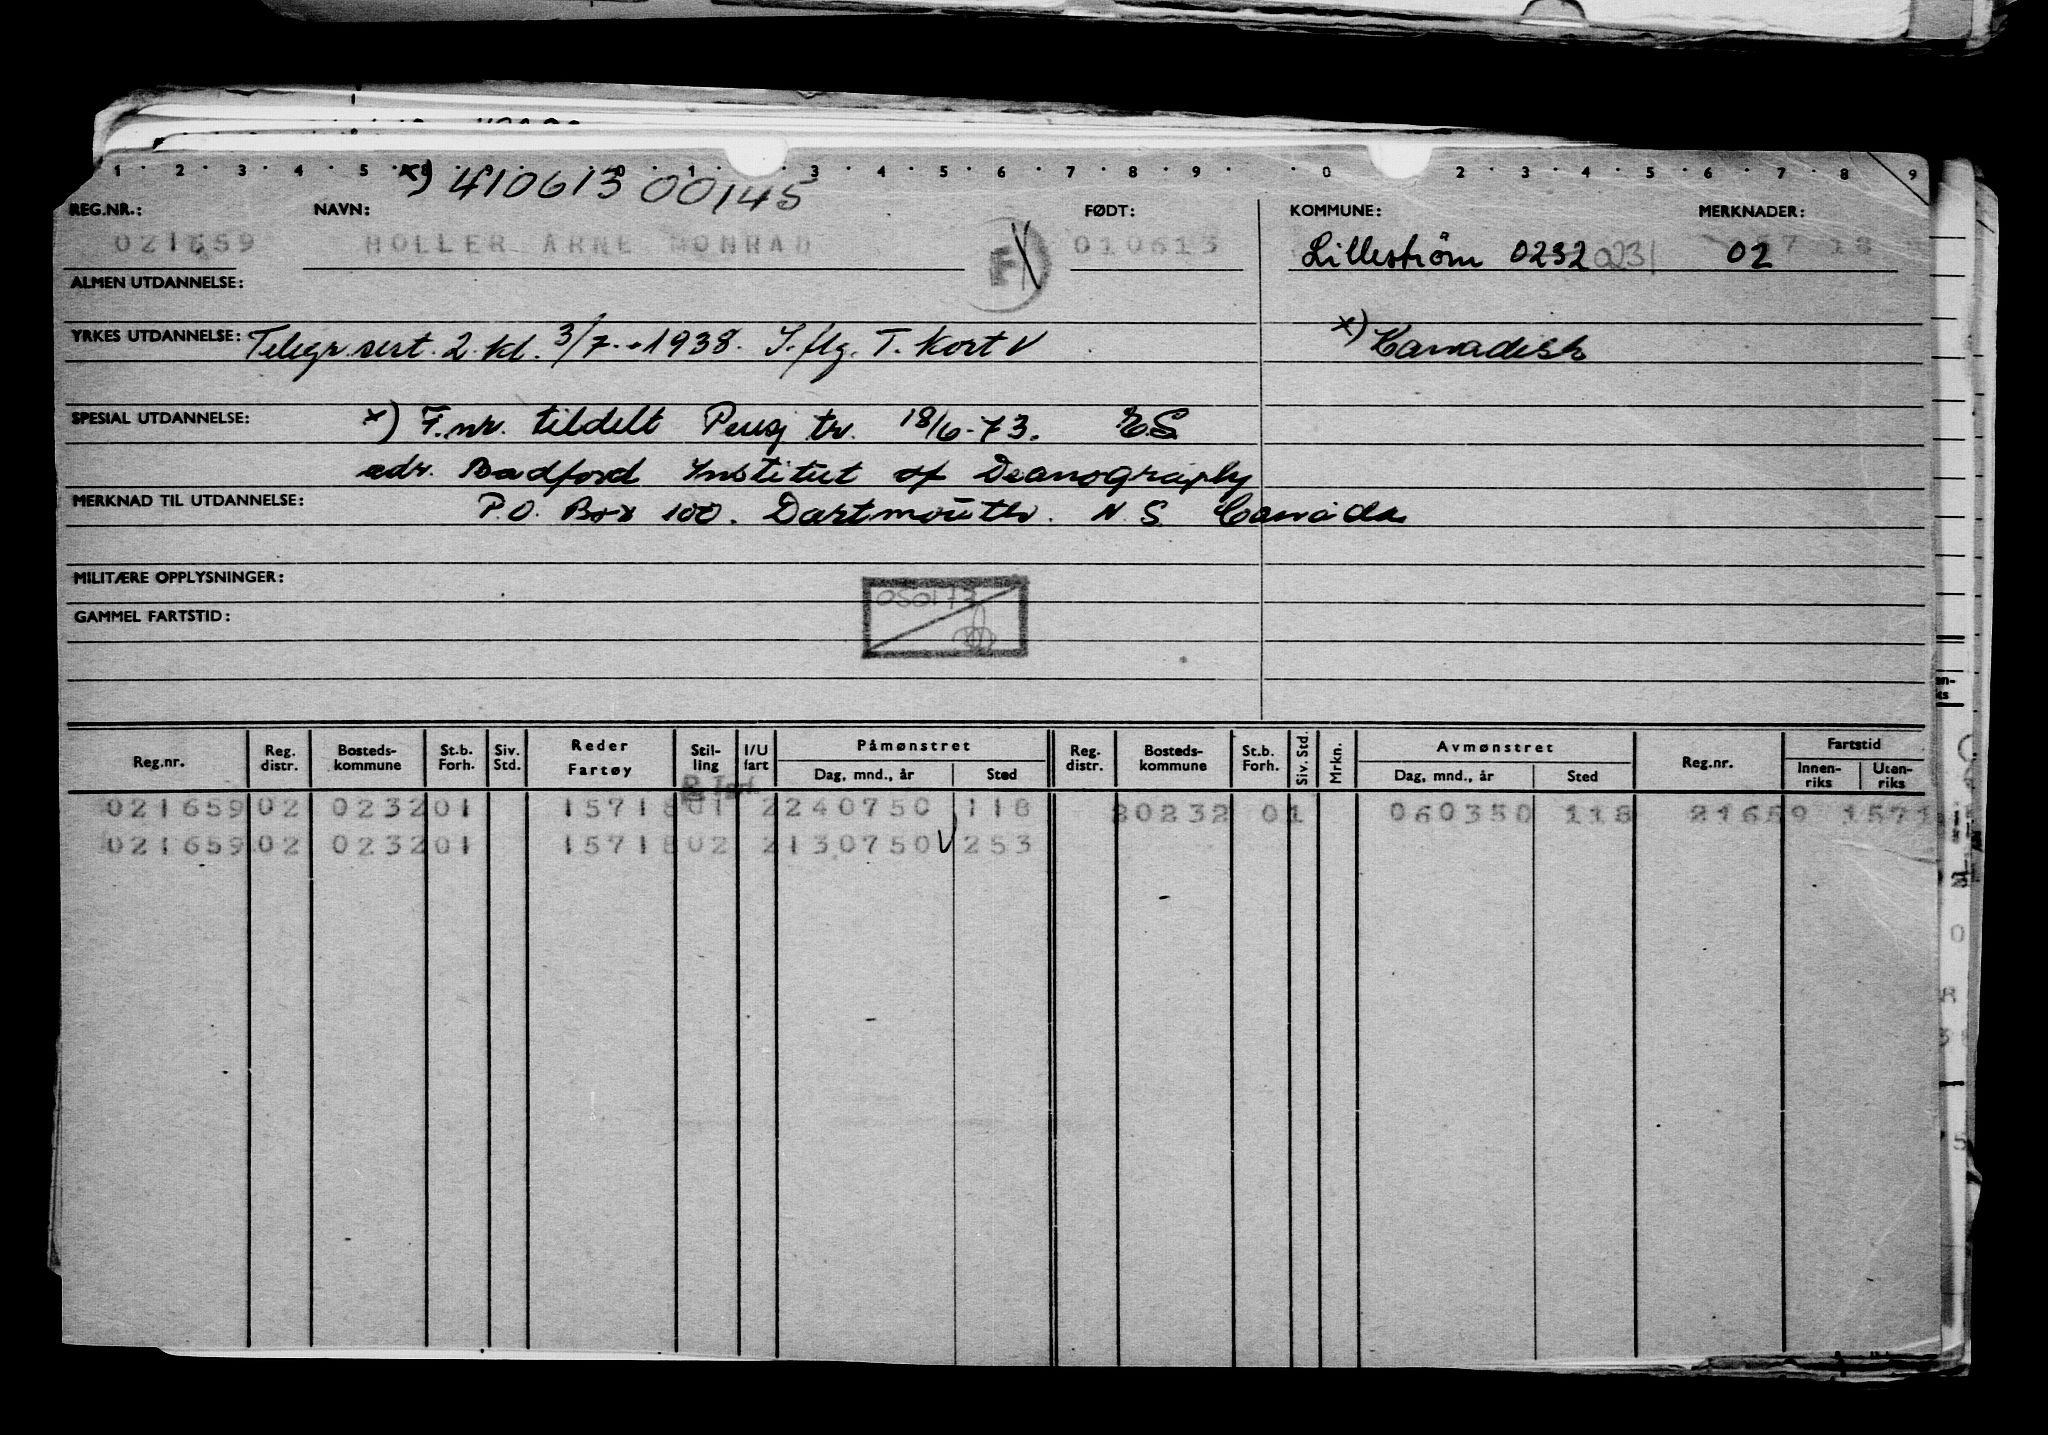 x) 410613 00145
REG.NR.: NAVN: FØDT: KOMMUNE: MERKNADER:
021659 HOLLER ARNE MONRAD F 010613 Lilleström 0232 0231 02
ALMEN UTDANNELSE:
YRKES UTDANNELSE: Telegr. sert. 2. kl. 3/7.-1938. I. flg. T. Kort V x) Kanadisk
SPESIAL UTDANNELSE: x) F.nr. tildelt Pensj tr. 18/6-73. E.S.
adr. Badford Institut of Oceanography
MERKNAD TIL UTDANNELSE: P.O. Box 100. Dartmouth. N.S. Canada
MILITÆRE OPPLYSNINGER:
050173
GAMMEL FARTSTID:
Reg.nr. Reg. distr. Bosteds- kommune St.b. Forh. Siv. Std. Reder Fartøy Stil- ling I/U fart Påmønstret Dag, mnd., år Sted Reg. distr. Bosteds- kommune St.b. Forh. Siv. Std. Mrkn. Avmønstret Dag, mnd., år Sted Reg.nr. Fartstid Innen- riks Uten- riks
021659 02 0232 01 15718 01 2 240750 118 20232 01 060350 118 21659 1571
021659 02 0232 01 15718 02 2 130750 V 253